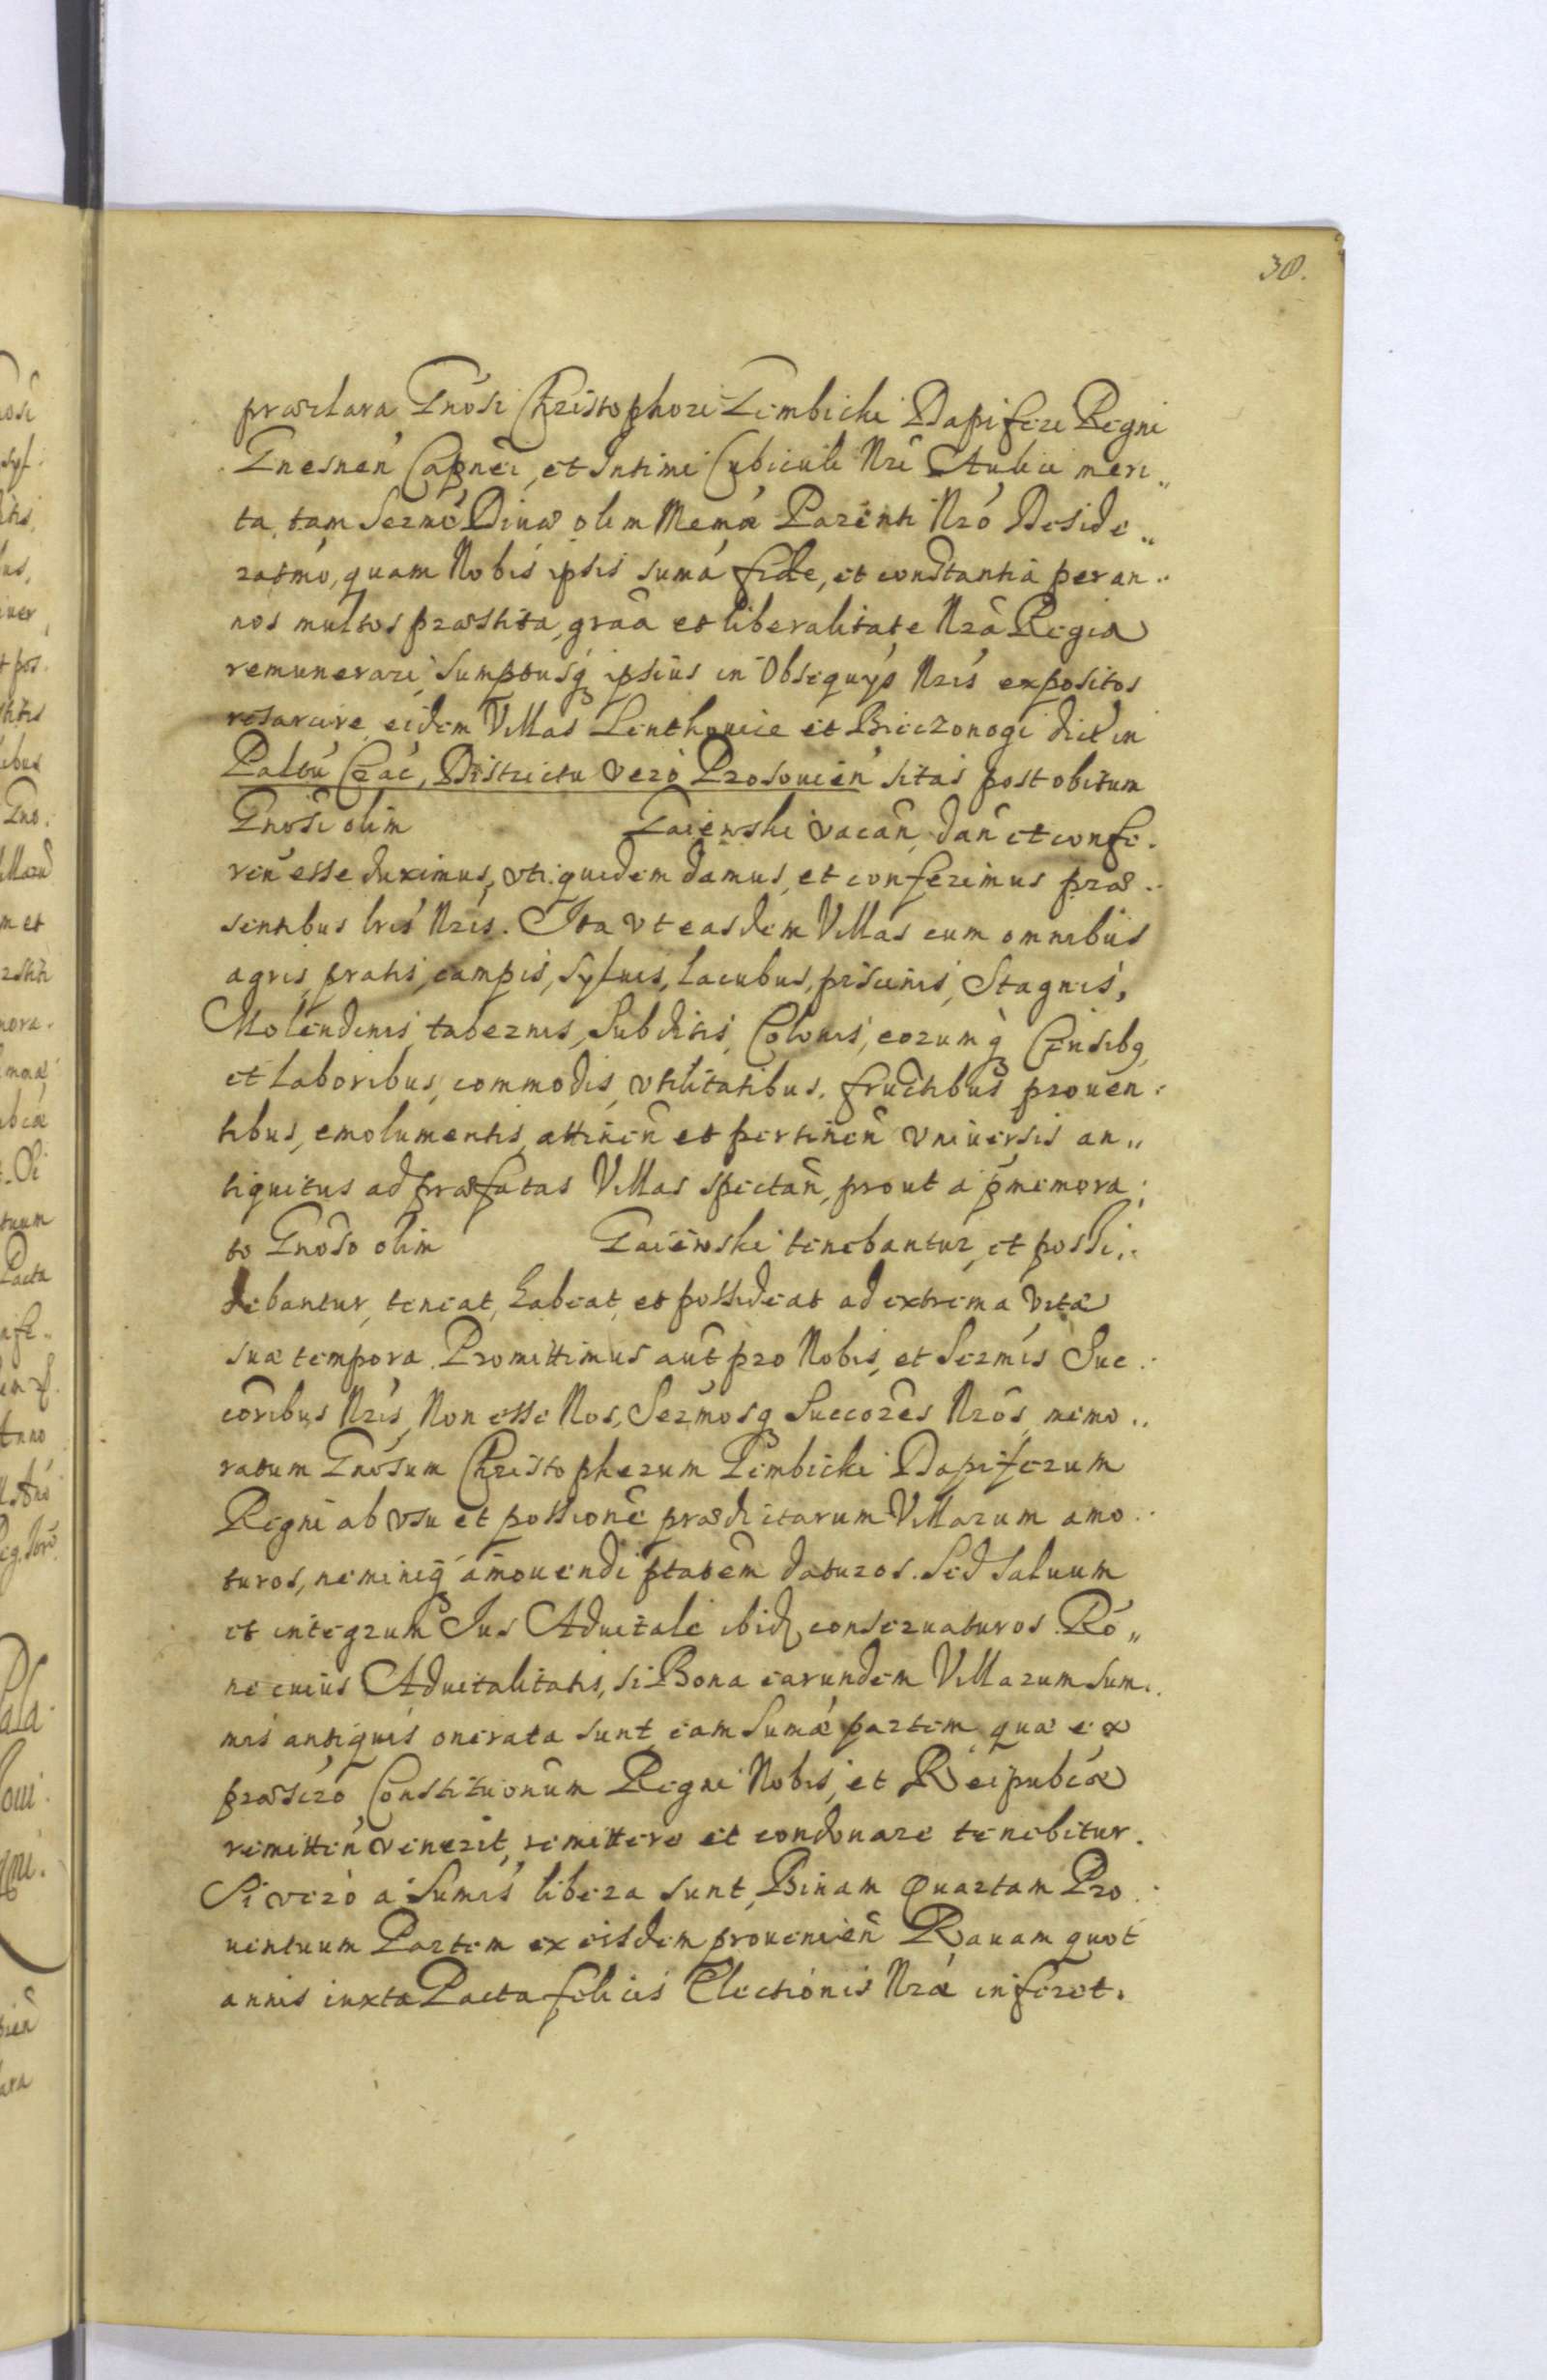 38.
præclara Gnosi Christophori Gembicki Dapiferi Regni
Gnesnen Capnei, et Intimi Cubiculi Nri Aulici meri„
ta, tam Sermo Divæ olim Memæ Parenti Nro Deside„
ratmo, quam Nobis ipsis suma fide, et constantia per an„
nos multos præstita, graa et liberalitate Nra Regia
remunerari, sumptusq ipsius in Obsequijs Nris expositos
resarcire, eidem Villas Lenthowice et Biezonogi dict in
Paltu Crac, Districtu vero Prosouien sitas post obitum
Gnosi olim Gaiewski vacan, dan et confe„
ren esse duximus, uti quidem damus, et conferimus præ„
sentibus lris Nris. Ita vt easdem Villas cum omnibus
agris, pratis, campis, syluis, lacubus, piscinis, Stagnis,
Molendinis, tabernis, Subditis, Colonis, eorumq Censibg,
et laboribus, commodis, vtilitatibus, fructibus prouen„
tibus, emolumentis, attinen et pertinen vniuersis an„
tiquitus ad præfatas Villas spectan, prout a pmemora„
to Gnoso olim Gaiewski tenebantur, et possi„
debantur, teneat, habeat, et possideat ad extrema vitæ
suæ tempora. Promittimus aut pro Nobis, et Sermis Suc„
coribus Nris, Non esse Nos, Sermosq Succores Nros, memo„
ratum Gnosum Christopherum Gembicki Dapiferum
Regni ab vsu et possione prædictarum Villarum amo„
turos, neminiq amouendi ptatem daturos. Sed saluum
et integrum Jus Aduitale ibid conseruaturos. Ro„
ne cuius Aduitalitatis, si Bona earundem Villarum sum„
mis antiquis onerata sunt, eam Sumæ partem, quæ ex
præscro Constitutionum Regni Nobis, et Reipubcæ
remitten venerit, remittere et condonare tenebitur.
Si vero a Sumis libera sunt, Binam Quartam Pro„
uentuum Partem ex eisdem prouenien Rauam quot
annis iuxta Pacta felicis Electionis Nræ inferet.